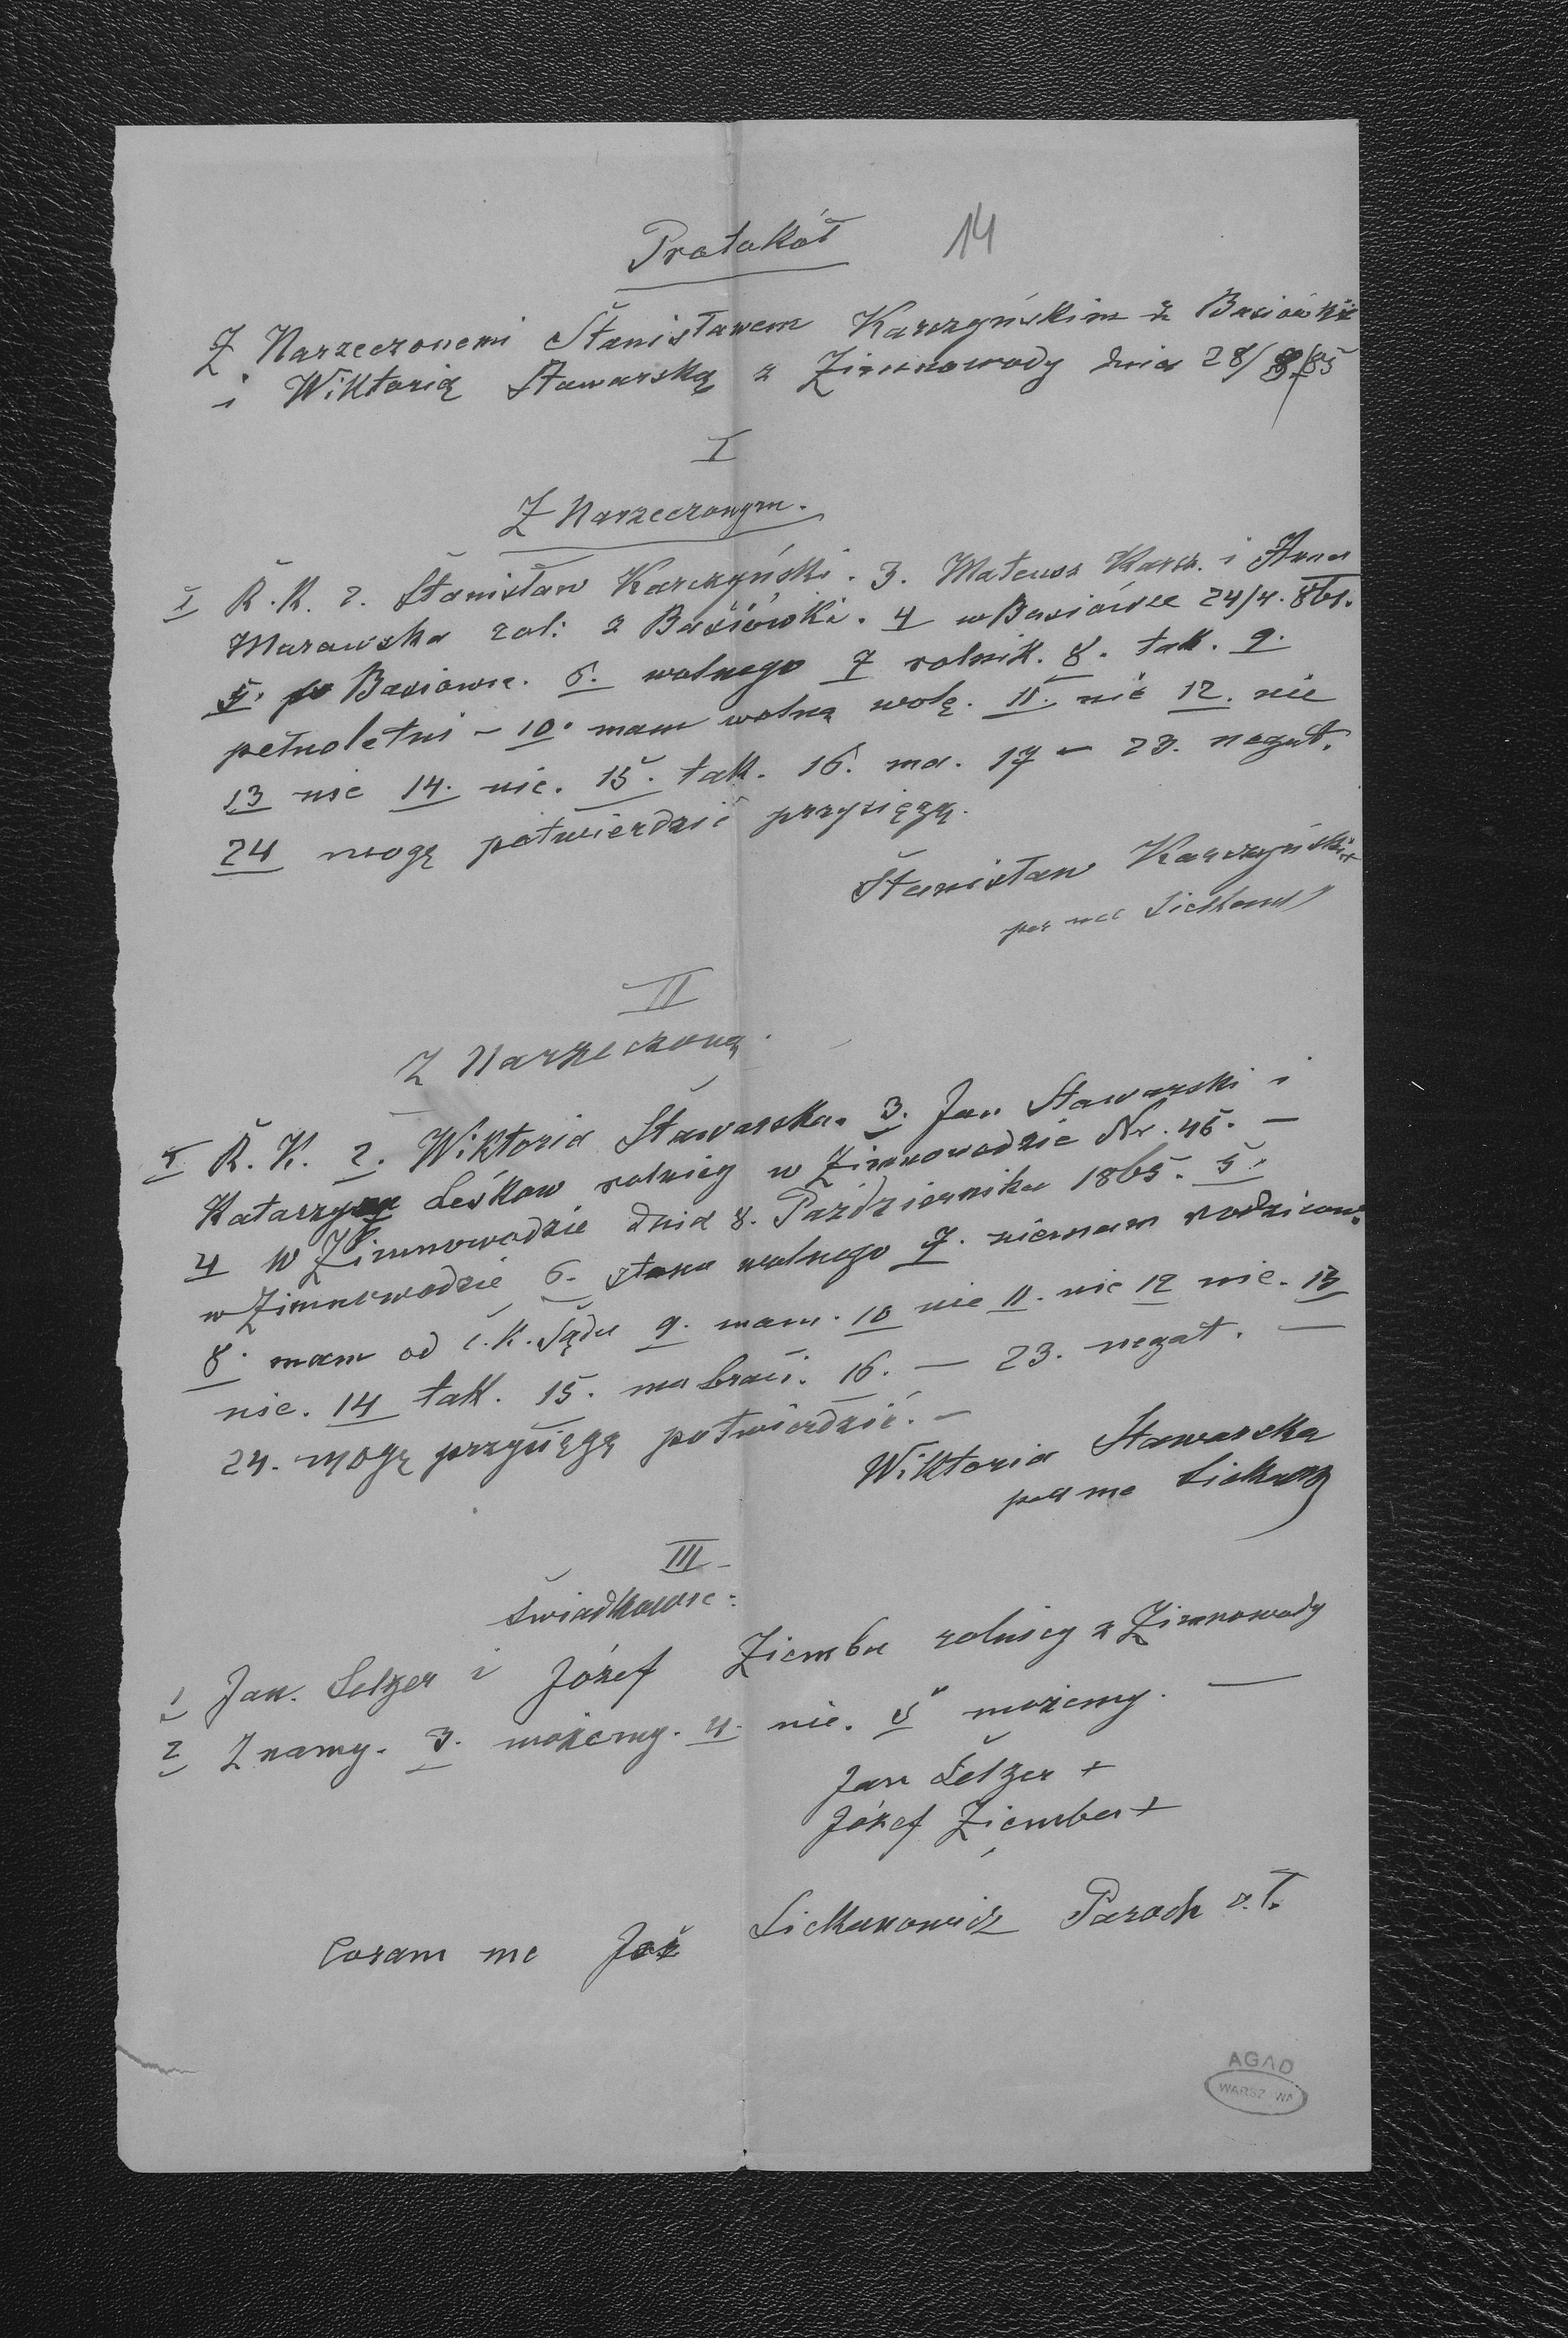 Protokół 14
Z Narzeczonemi Stanisławem Karczyńskim z Basiówki
i Wiktorią Stawarską z Zimnowody dnia 28/ /85
I
Z Narzeczonym.
1 R.K. 2. Stanisław Karczyński. 3. Mateusz Karcz. i Anna
Marawska rol: z Basiówki. 4 w Basiówce 24/4. 861.
5. Basiówce. 6. wolnego 7 rolnik. 8. tak. 9.
pełnoletni – 10. mam wolną wolę. 11. nie 12. nie
13 nie 14. nie. 15. tak. 16. ma. 17 – 23. negat.
24 mogę potwierdzić przysięgą.
Stanisław Karczyński +
per me
II
Z Narzeczoną.
1 R.K. 2. Wiktoria Stawarska. 3. Jan Stawarski i
Katarzyna Leśków rolnicy w Zimnowodzie Nr. 46. —
4 w Zimnowodzie dnia 8. Października 1865. 5.
w Zimnowodzie 6. stanu wolnego 7. niemam rodziców.
8. mam od c.k. Sądu 9. mam. 10 nie 11. nie 12 nie. 13
nie. 14 tak. 15. ma braci. 16. — 23. negat. —
24. mogę przysięgą potwierdzić. –
Wiktoria Stawarska
per me
III
Świadkowie:
1 Jan. Selzer i Józef Ziemba rolnicy z Zimnowody
2 Znamy. 3. możemy. 4. nie. 5 możemy. —
Jan Selzer +
Józef Ziemba +
Coram me Paroch r.l.
AGAD
WARSZAWA